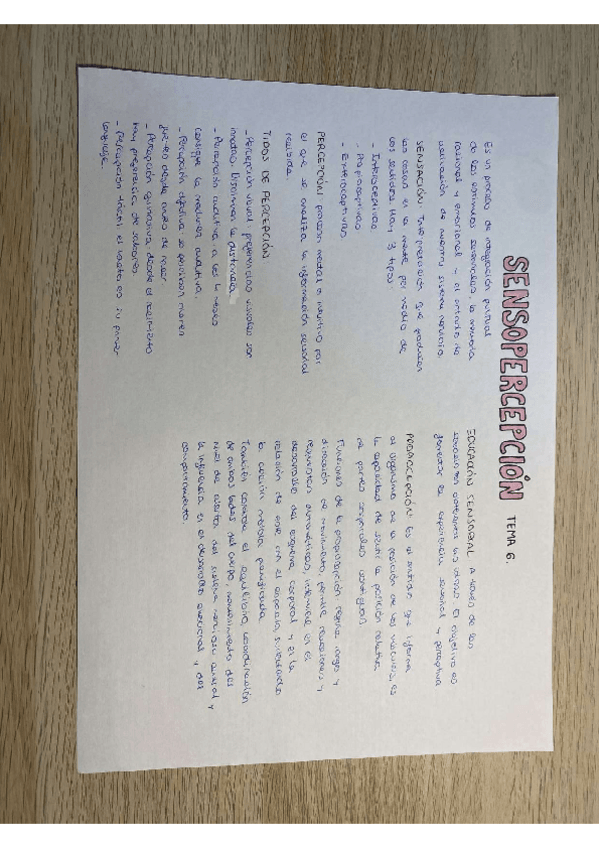 SENSOPERCEPCIÓN TEMA 6.
Es un proceso de integración puntual
de los estímulos sensoriales, la memoria
racional y emocional y el estado de
activación de nuestro sistema nervioso.
SENSACIÓN: Interpretación que producen
las cosas en la mente por medio de
los sentidos. Hay 3 tipos:
- Interoceptivas
- Propioceptivas
- Exteroceptivas
PERCEPCIÓN: proceso medial e intuitivo por
el que se analiza la información sensorial
recibida.
TIPOS DE PERCEPCIÓN:
- Percepción visual: preferencias visuales son
innatas. Discrimina la distancia
- Percepción auditiva: a los 2 meses
consigue la madurez auditiva.
- Percepción olfativa: se perciben olores
desde antes de nacer.
- Percepción gustativa: desde el nacimiento
hay preferencia de sabores
- Percepción táctil: el tacto es su primer
lenguaje.
EDUCACIÓN SENSORIAL: A través de los
sentidos obtenemos las ideas. El objetivo es
favorecer la experiencia sensorial y perceptiva
PROPIOCEPCIÓN: Es el sentido que informa
al organismo de la posición de los músculos, es
la capacidad de sentir la posición relativa
de partes corporales contiguas.
Funciones de la propiocepción: regula rango y
dirección de movimiento, permite reacciones y
respuestas automáticas, interviene en el
desarrollo del esquema corporal y en la
relación de este con el espacio, sustentando
la acción motora planificada.
También controla el equilibrio, coordinación
de ambos lados del cuerpo, mantenimiento del
nivel de alerta del sistema nervioso central y
la influencia en el desarrollo emocional y del
comportamiento.